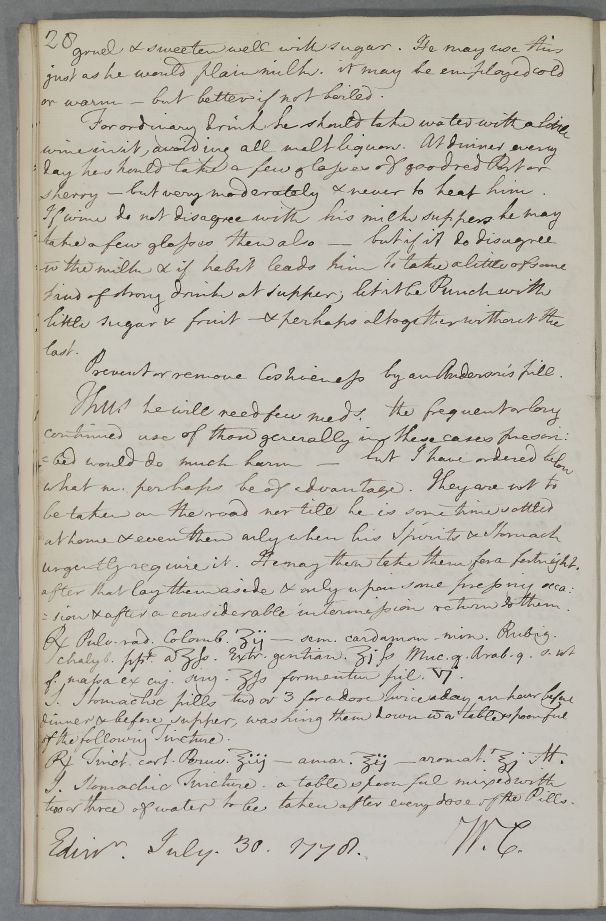 28
gruel & sweeten well with sugar. He may use this
just as he would plain milk. it may be employed cold
or warm — but better if not boiled.
For ordinary drink he should take water with a little
wine in it, avoiding all malt liquors. At dinner every
day he should take a few glasses of good red Port or
sherry — but very moderately & never to heat him.
If wine do not disagree with his milk suppers he may
take a few glasses then also — but if it do disagree
w the milk & if habit leads him to take a little of some
kind of strong drink at supper, let it be Punch with
little sugar & fruit — & perhaps altogether without the
last.
Prevent or remove Costiveness by an Anderson's pill.
Thus he will need few meds. the frequent or long
continued use of those generally in these cases prescri:
=bed would do much harm — but I have ordered below
what m. perhaps be of advantage. They are not to
be taken on the road nor till he is some time settled
at home & even then only when his Spirits & Stomach
urgently require it. He may then take them for a fortnight.
after that lay them aside & only upon some pressing occa:
=sion & after a considerable intermission return to them.
℞ Pulv. rad. Colomb. ʒij — sem. cardamom. min. Rubig.
chalyb. ppt. a ʒſs. Extr. gentian. ʒiſs Muc. g. Arab. q. s. ut
f. massa ex cuj. sing. ʒſs formentur pil. vj.
S. Stomachic pills two or 3 for a dose twice a day an hour before
dinner & before supper, washing them down w a table spoonful
of the following Tincture.
℞ Tinct. cort. Peruv. ℥iij — amar. ℥ij — aromat. ℥j M.
S. Stomachic Tincture. a table spoonful mixed with
two or three of water to be taken after every dose of the Pills.
Edinr. July. 30. 1778. W.C.